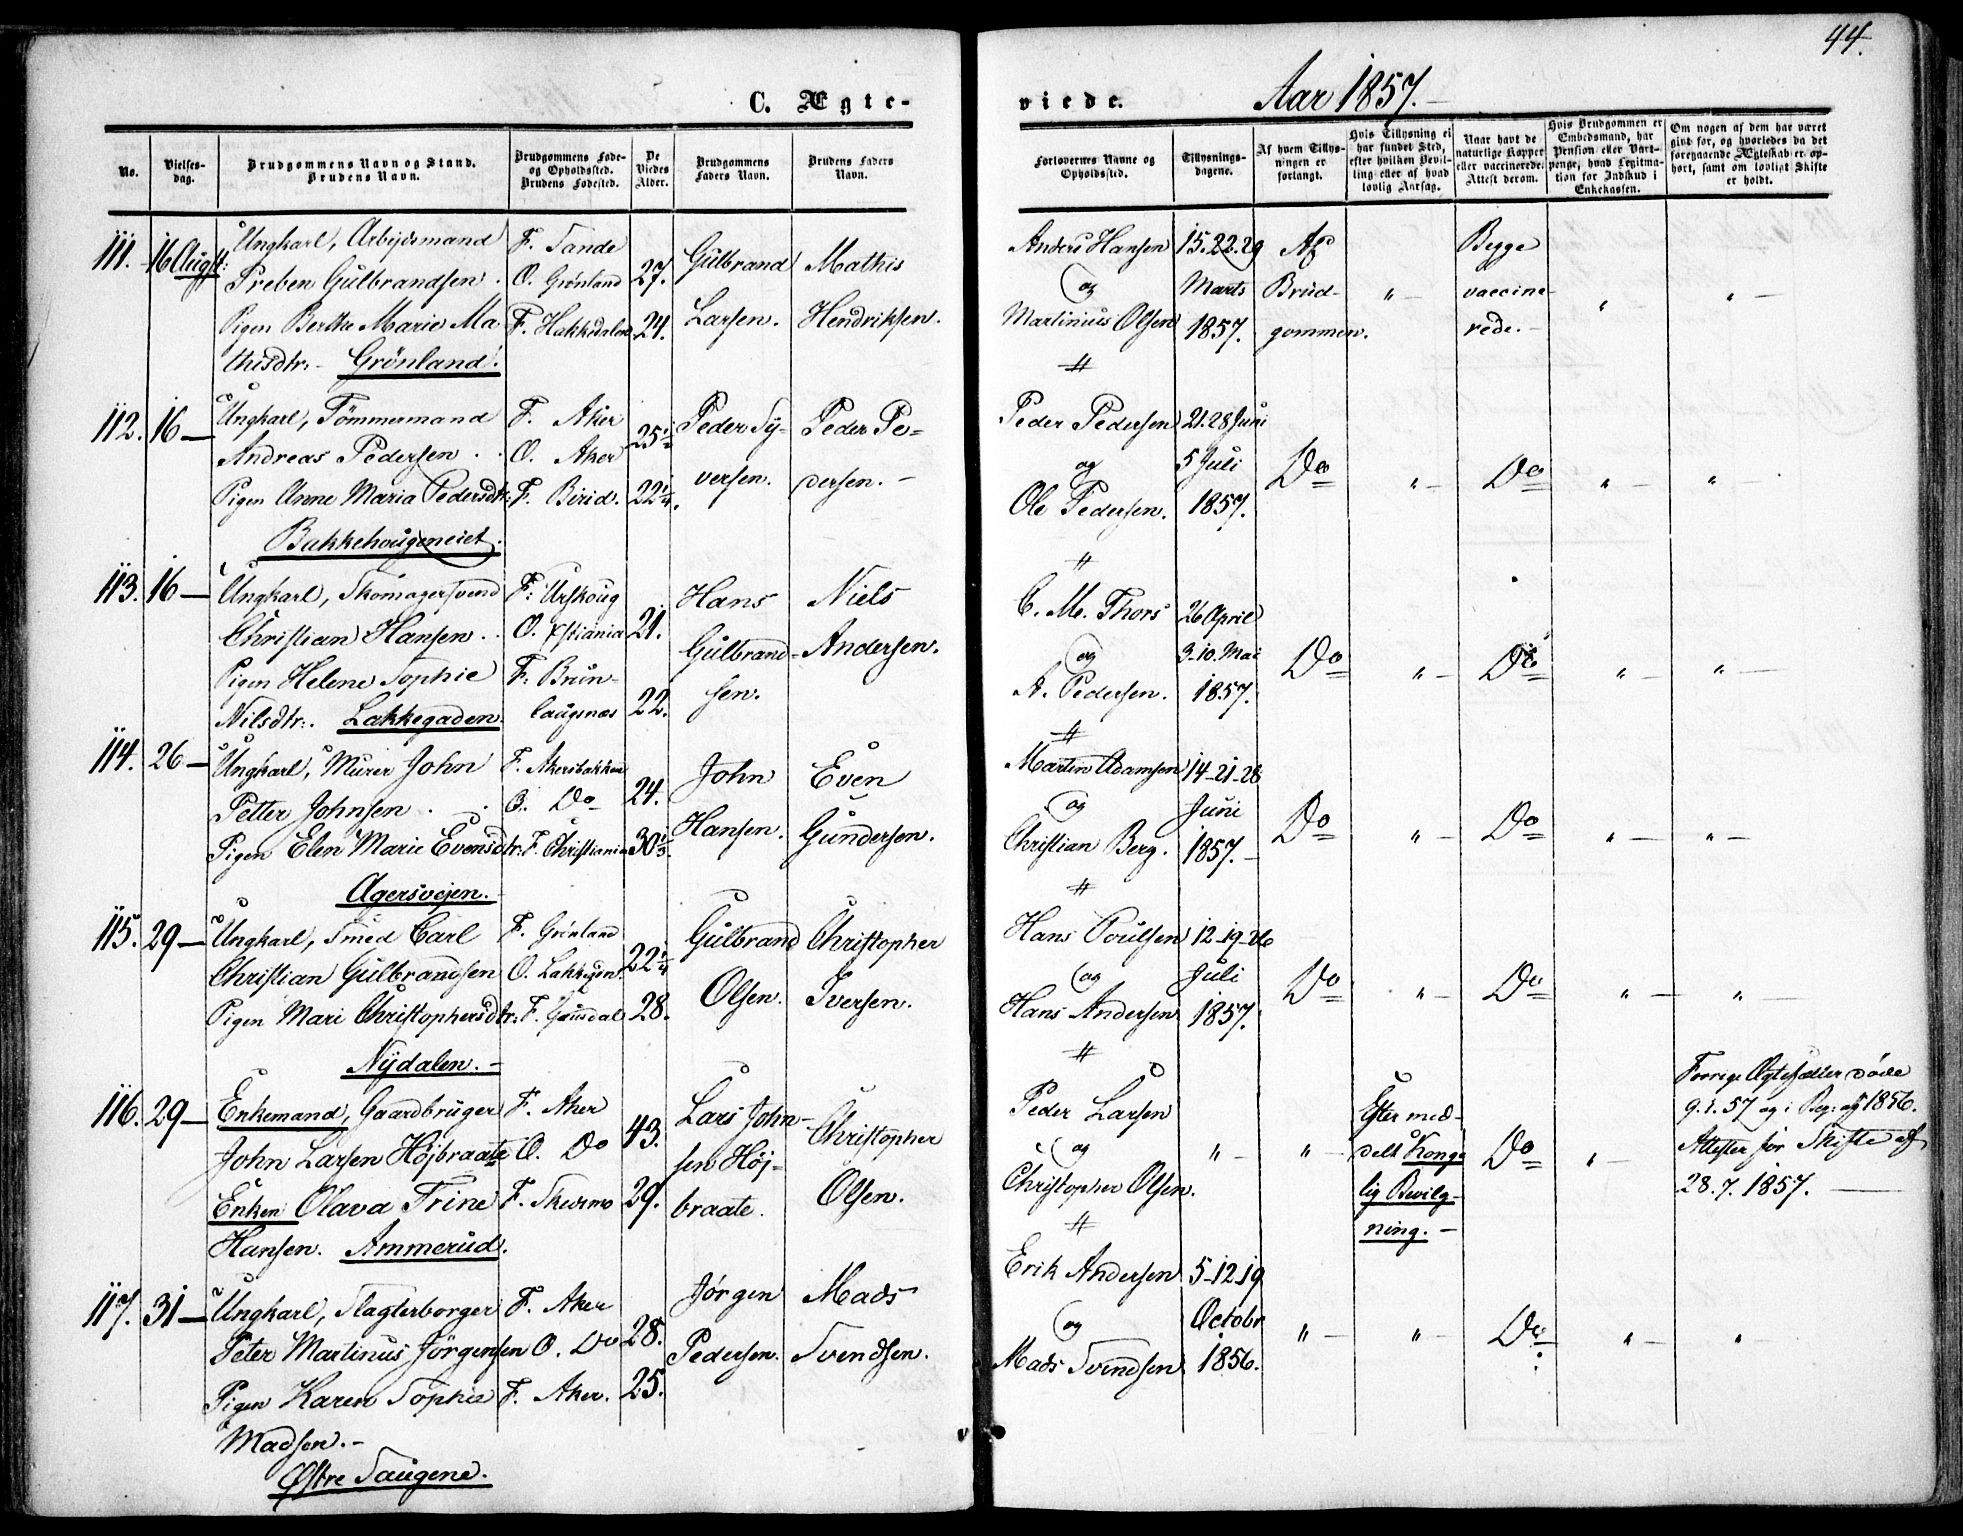 44.
C. Ægte-
viede.
Aar 1857.
No.
Vielses-
dag.
Brudgommens Navn og Stand.
Brudens Navn.
Brudgommens Føde-
og Opholdssted.
Brudens Fødested.
De
Viedes
Alder.
Brudgommens
Faders Navn.
Brudens Faders
Navn.
Forlovernes Navne og
Opholdssted.
Tillysnings-
dagene.
Af hvem Tillys-
ningen er
forlangt.
Hvis Tillysning ei
har fundet Sted,
efter hvilken Bevil-
ling eller af hvad
lovlig Aarsag.
Naar havt de
naturlige Kopper
eller vaccinerede.
Attest derom.
Hvis Brudgommen er
Embedsmand, har
Pension eller Vart-
penge, hvad Legitima-
tion for Indskud i
Enkekassen.
Om nogen af dem har været
gift før, og hvorledes da det
foregaaende Ægteskab er op-
hørt, samt om lovligt Skifte
er holdt.
111. 16 Augst: Ungkarl, Arbejdsmand
Preben Gulbrandsen .
Pigen Berthe Marie Ma
thisdtr: - Grønland.
F. Sande
O. Grønland
F. Hakkedalen
27.
24.
Gulbrand
Larsen.
Mathis
Hendriksen.
Anders Hansen
og
Martinius Olsen
15. 22. 29
Marts
1857.
Af
Brud-
gommen.
" -
Begge
vaccine-
rede. -
" -
" -
112. 16 - Ungkarl, Tömmermand
Andreas Pedersen . .
Pigen Anne Maria Pedersdtr:
Bakkehougeneiet.
F. Aker
O. Aker
F. Birid.
25½
22¼.
Peder Sy-
versen.
Peder Pe-
dersen. -
Peder Pedersen
og
Ole Pedersen.
21. 28 Juni
5 Juli
1857.
Do
" -
Do
" -
" -
113. 16 - Ungkarl, Skomagersvend
Christian Hansen . .
Pigen Helene Sophie
Nilsdtr:. Lakkegaden.
F: Urskoug
O. Xstiania
F: Brun-
laugsnæs
21.
22.
Hans
Gulbrand-
sen.
Niels
Andersen.
C. M. Thors
og
A. Pedersen.
26 April
3-10. Mai
1857.
Do
" -
Do
" -
" -
114. 26 - Ungkarl, Murer John
Petter Johnsen . .
Pigen Elen Marie Evensdtr:
Agersvejen. -
F. Akersbakken
O. Do
F. Christiania
24.
30⅓.
John
Hansen.
Even
Gundersen.
Martin Adamsen
og
Christian Berg.
14-21-28
Juni
1857. -
Do
" -
Do
" -
" -
115. 29 - Ungkarl, Smed Carl
Christian Gulbrandsen
Pigen Mari Christophersdtr:
Nydalen. -
F. Grønland
O. Lakkegden.
F. Gausdal
22¼
28.
Gulbrand
Olsen.
Christopher
Iversen.
Hans Poulsen
og
Hans Andersen
12-19-26
Juli
1857.
Do
" -
Do
" -
" -
116. 29 - Enkemand, Gaardbruger
John Larsen Højbraate
Enken Olava Trine
Hansen. Ammerud.
F. Aker
O. Do
F. Skedsmo
43.
29.
Lars John-
sen Høj-
braate.
Christopher
Olsen.
Peder Larsen
og
Christopher Olsen.
" -
" -
Efter med-
delt Konge
lig Bevilg-
ning. -
Do
" -
Forrige Ægtefæller døde
9.1.57 og i Beg: af 1856.
Attester for Skifte af
28.7.1857.
117. 31 - Ungkarl, Slagterborger
Peter Martinus Jörgensen
Pigen Karen Sophie
Madsen. -
Østre Saugene.
F. Aker
O. Do
F. Aker.
28.
25.
Jørgen
Pedersen.
Mads
Svendsen.
Erik Andersen
og
Mads Svendsen
5-12-19
Octobr
1856.
" -
" -
Do
" -
" -